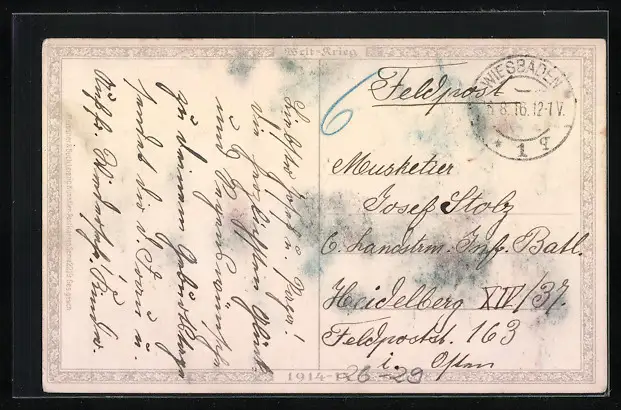 Welt-Krieg
Feldpost
WIESBADEN
8.16.12-1V.
* 1 g
6
Musketier
Josef Stolz
6. Landstrm. Inf. Batl.
Heidelberg XIV/37.
Feldpostst. 163
i. Osten
Liebster Josef u. Papa!
Die herzlichsten Glück
und Segenswünsche
zu deinem Geburtstage
sendet dir d. Frau u.
Kinder.
1914-1
26-29